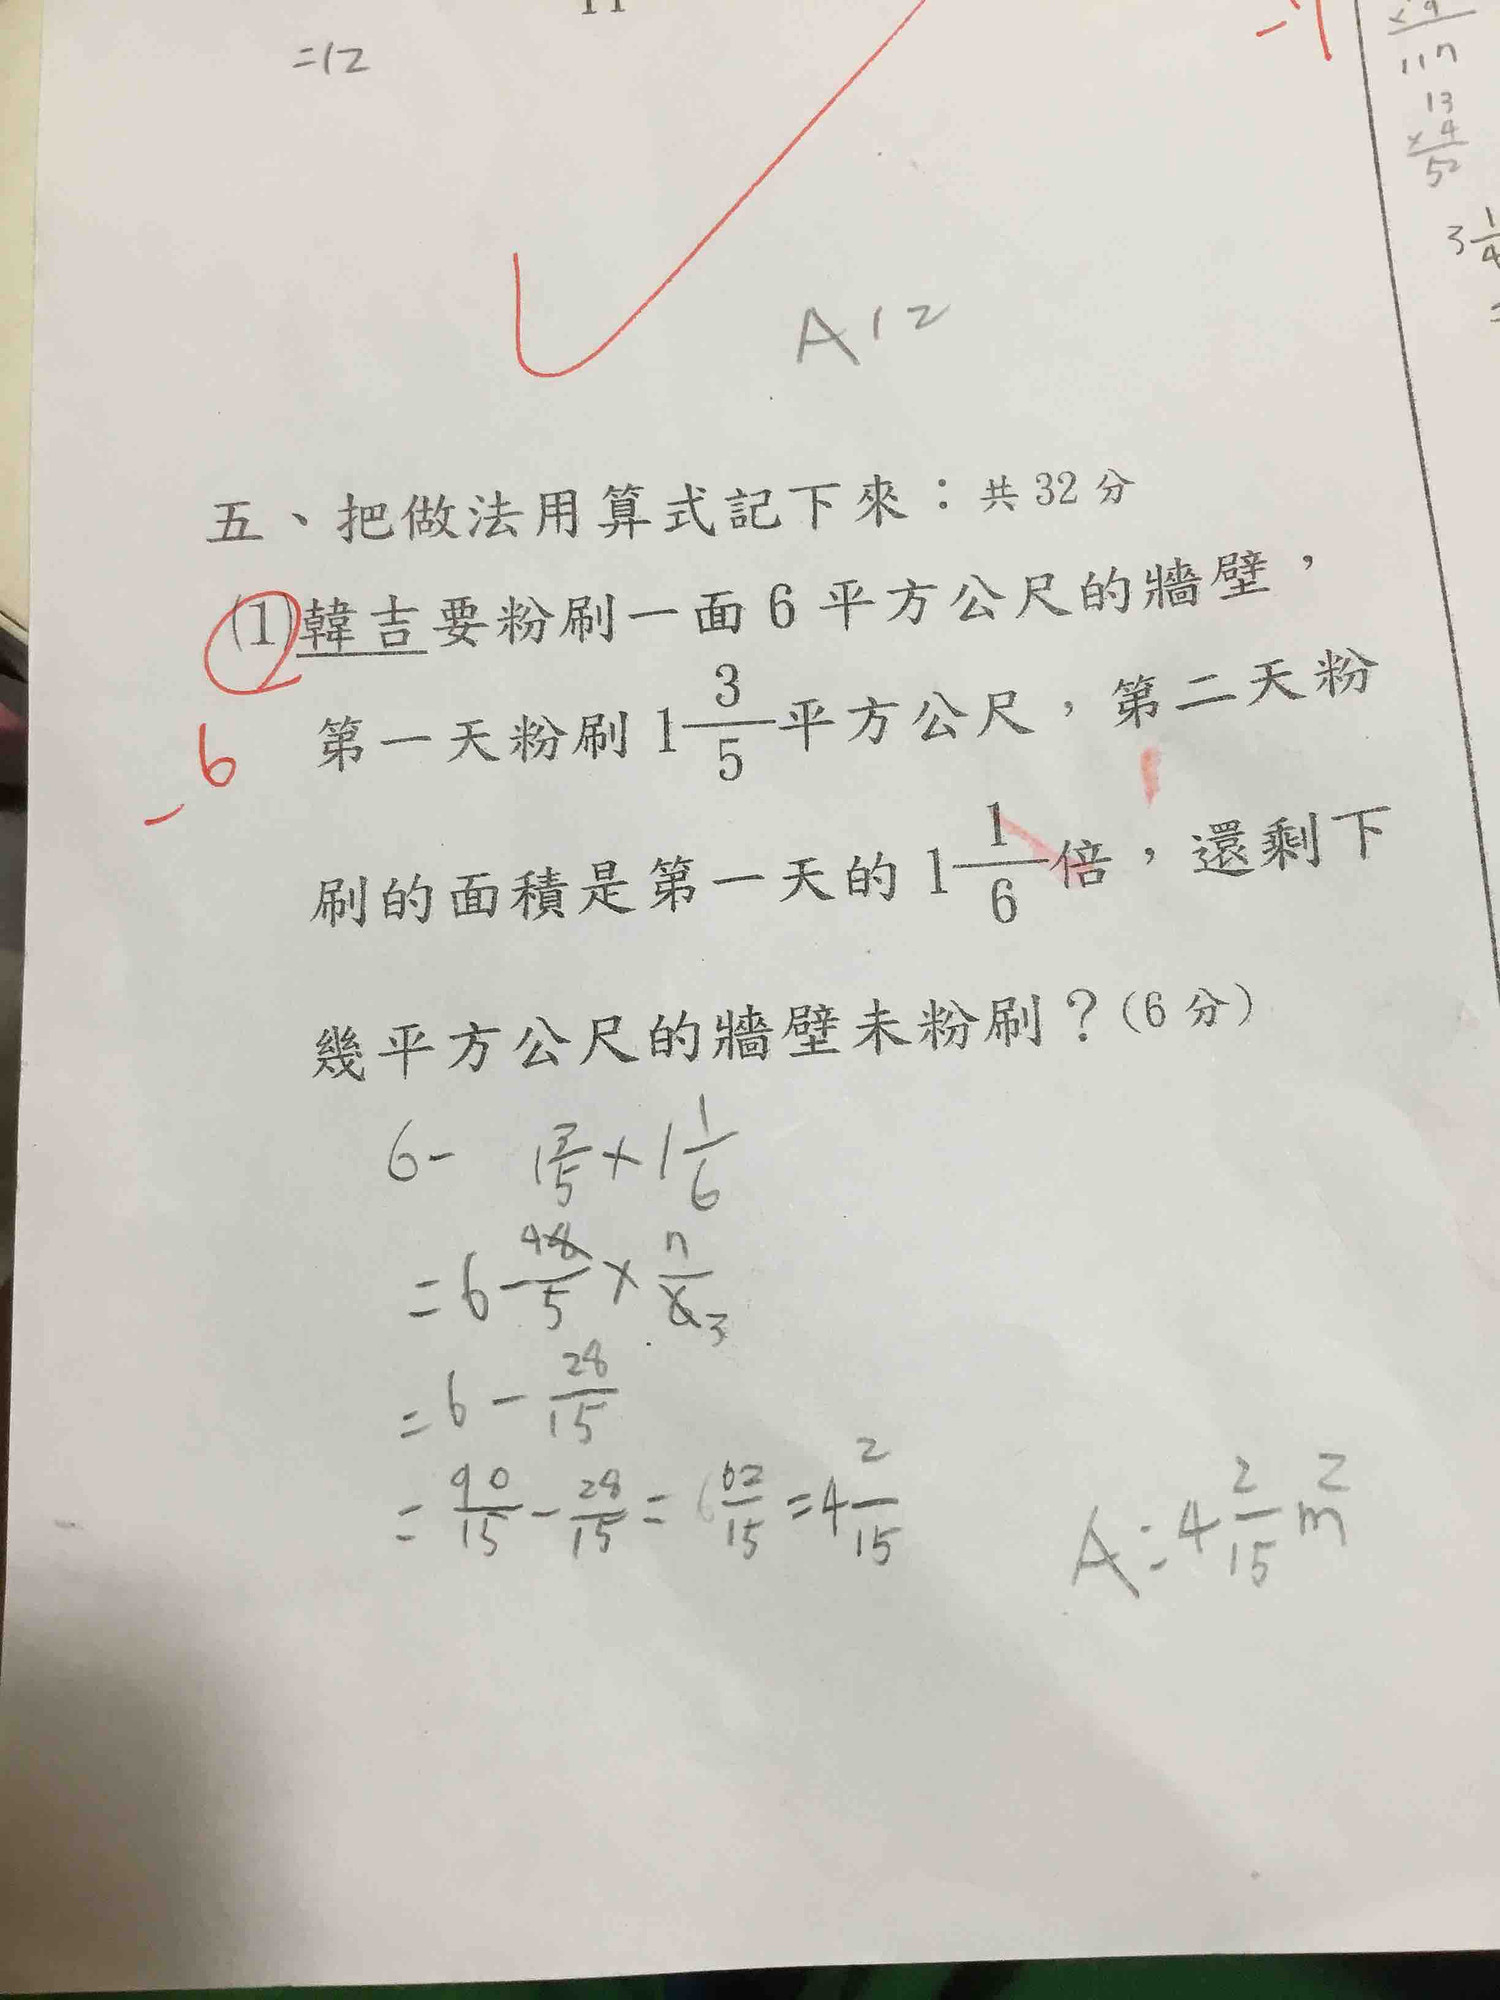 =12
A12
117
13
×4
52
3 1/4
-6
五、把做法用算式記下來：共32分
(1)韓吉要粉刷一面6平方公尺的牆壁，
第一天粉刷1 3/5平方公尺，第二天粉
刷的面積是第一天的1 1/6倍，還剩下
幾平方公尺的牆壁未粉刷？(6分)
6- 1 3/5×1 1/6
=6-48/5×7/6 3
=6-28/15
=90/15-28/15=62/15=4 2/15
A:4 2/15 m²